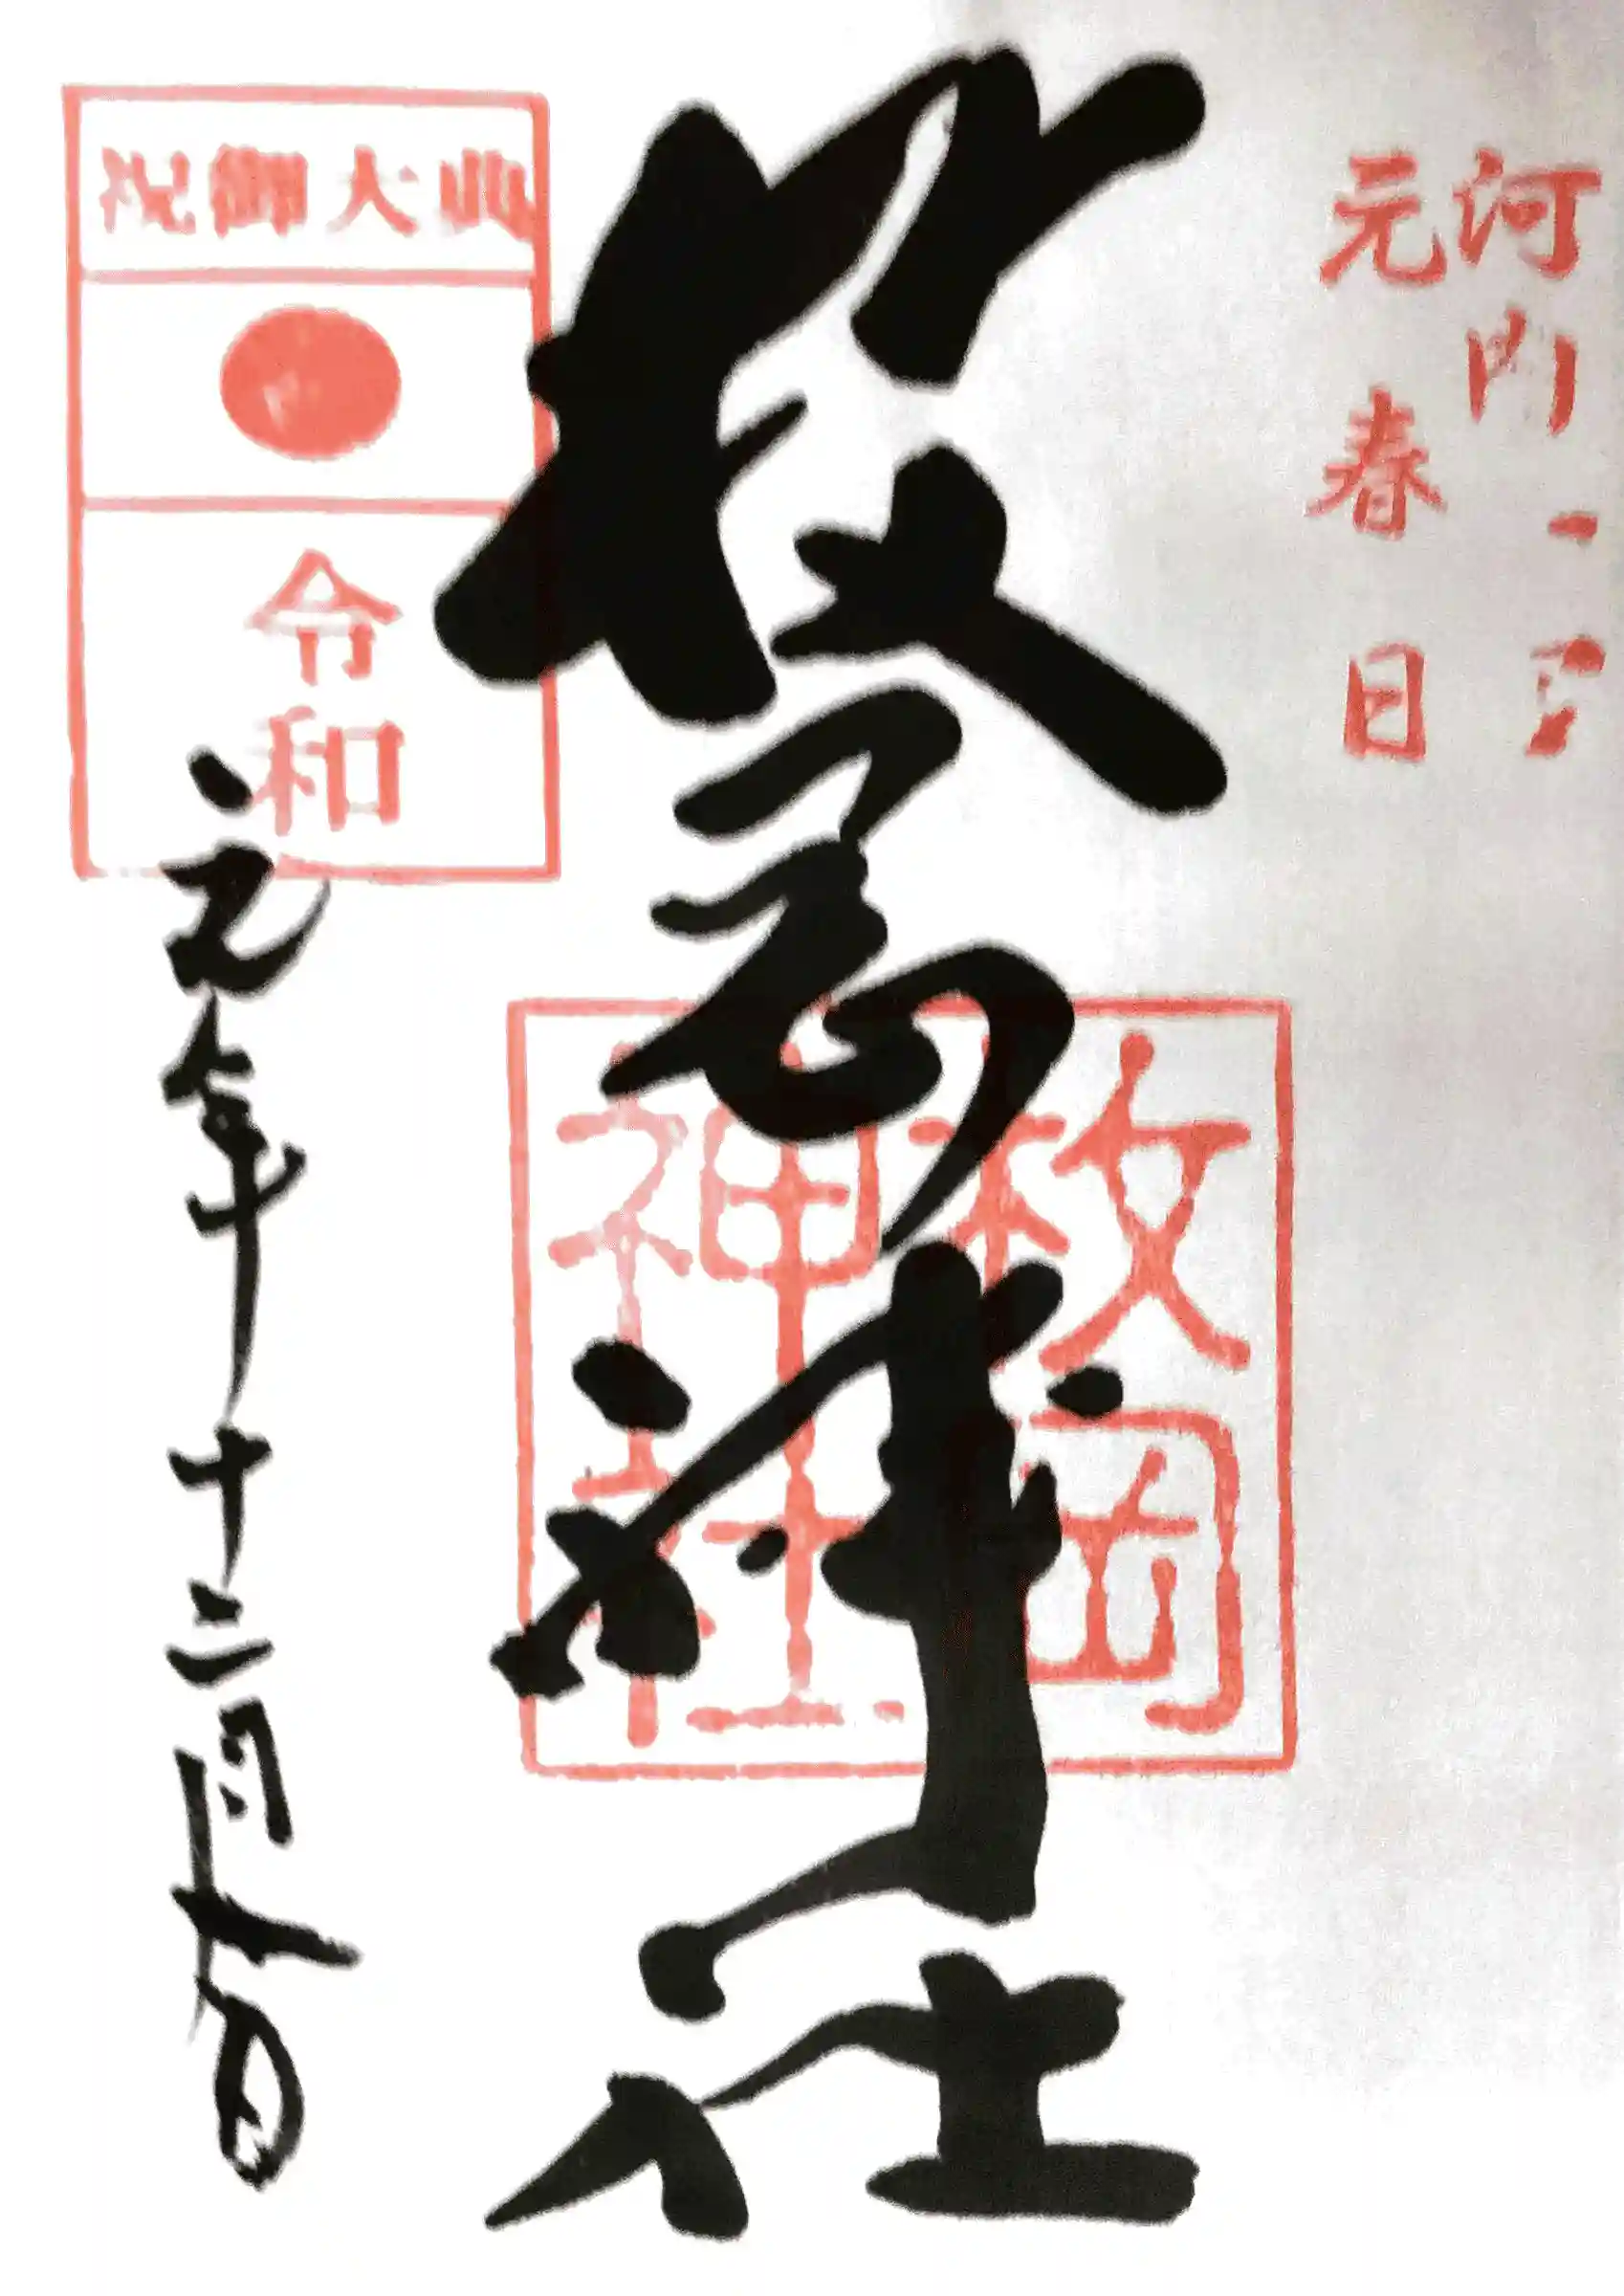 河内一
元春日
枚岡神社
枚岡
神社
祝御大典
令和
元年十二月十日